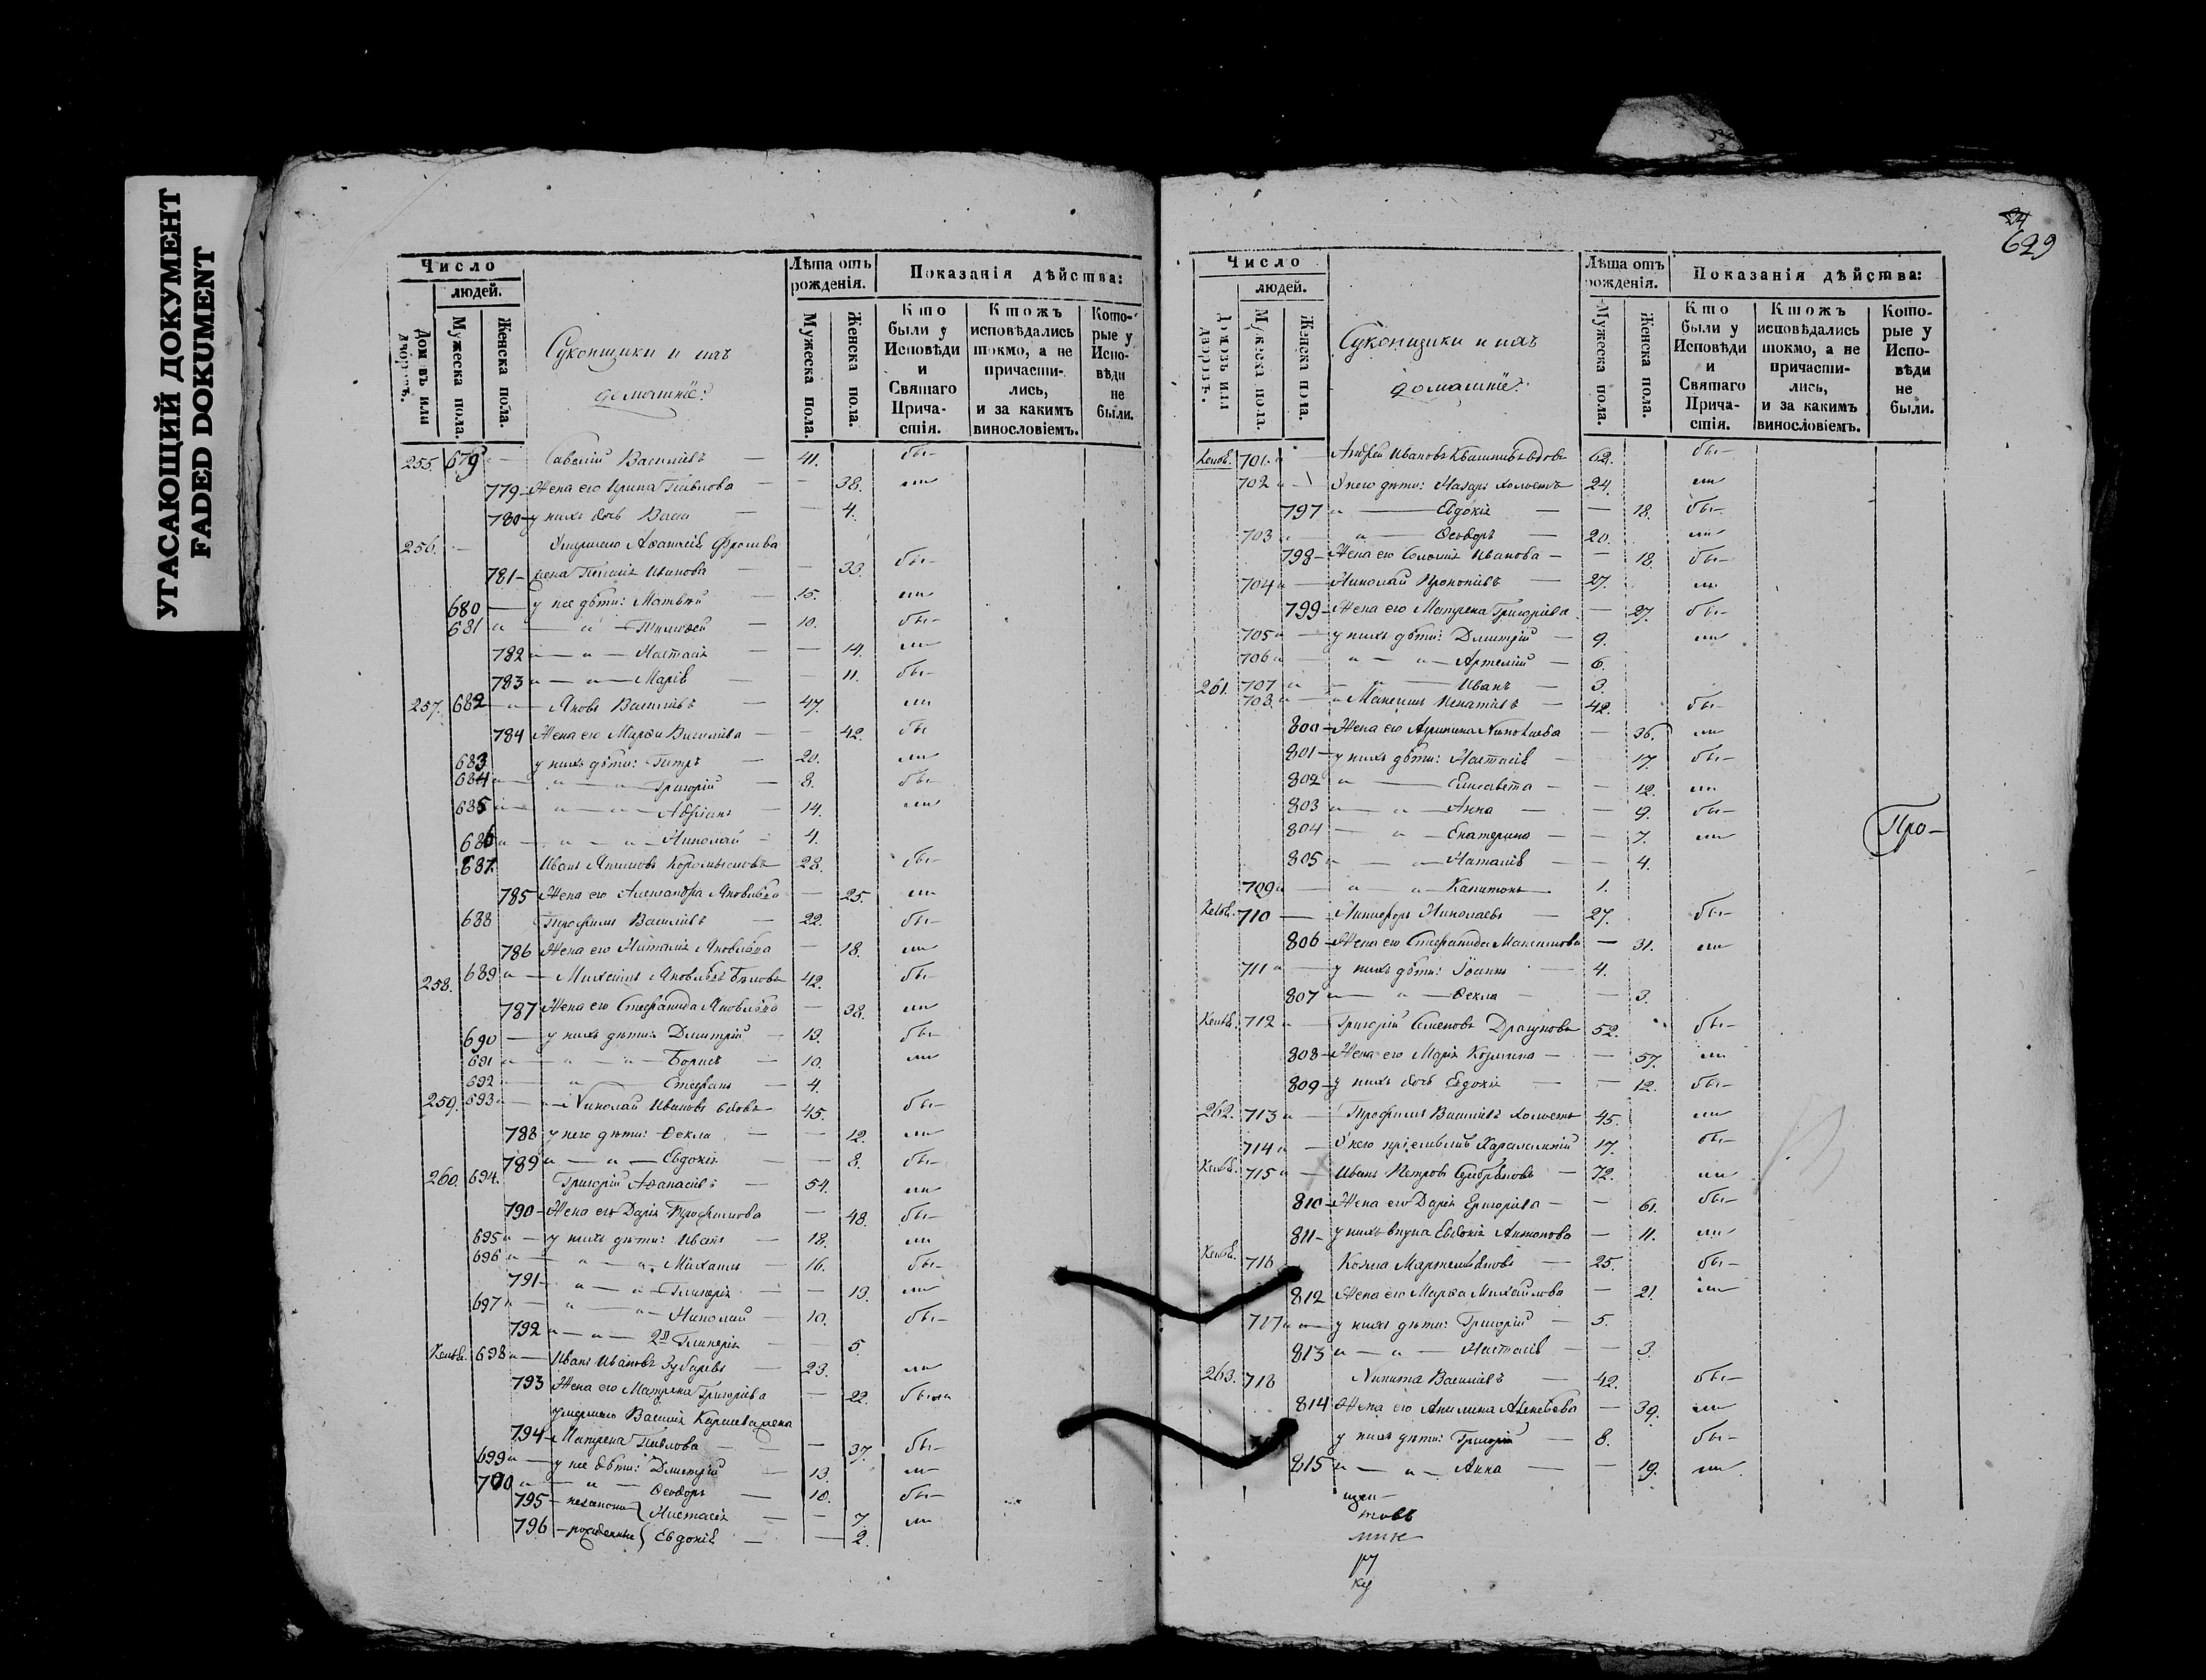 УГАСАЮЩИЙ ДОКУМЕНТ
FADED DOKUMENT
24
629
Число
людей.
Лѣта отъ рожденія.
Показанія дѣйства:
Домовъ или дворовъ.
Мужеска пола.
Женска пола.
Суконщики и ихъ
домашніе:
Мужеска пола.
Женска пола.
Кто были у Исповѣди и Святаго Причастія.
Ктожъ исповѣдались токмо, а не причастились, и за какимъ винословіемъ.
Которые у Исповѣди не были.
255. 679 Савелій Васильевъ — 41. бы-
779 Жена его Ирина Павлова — 38. ли
780 у нихъ дочь Васса — 4.
256. Умершаго Афанасія Фролова
781 жена Наталія Иванова — 33. бы-
680 у нее дѣти: Матвѣй — 15. ли
681 Тимофей — 10. бы-
782 Настасія — 14. ли
783 Марія — 11. бы-
257. 682 Яковъ Васильевъ — 47. ли
784 Жена его Марфа Васильева — 42. бы
683 у нихъ дѣти: Петръ — 20. ли
684 Григорій — 8. бы-
685 Адріанъ — 14. ли
686 Николай — 4.
687 Иванъ Акимовъ — 28. бы-
785 Жена его Александра Яковлева — 25. ли
688 Трофимъ Васильевъ — 22. бы-
786 Жена его Наталія Яковлева — 18. ли
258. 689 Михаилъ Яковлевъ Бѣловъ 42. бы-
787 Жена его Стефанида Яковлева — 38. ли
690 у нихъ дѣти: Дмитрій — 13. бы-
691 Борисъ — 10. ли
692 Стефанъ — 4.
259. 693 Николай Ивановъ вдовъ 45. бы-
788 у него дѣти: Ѳекла — 12. ли
789 Евдокія — 8. бы-
260. 694. Григорій Аѳанасіевъ — 54. ли
790 Жена его Дарія Трофимова — 48. бы-
695 у нихъ дѣти: Иванъ — 18. ли
696 Михаилъ — 16. бы-
791 Гликерія — 13. ли
697 Николай — 10. бы-
792 2я Гликерія — 5.
698 Иванъ Ивановъ Зубаревъ — 23. ли
793 Жена его Матрена Григорьева — 22. были
умершаго Василія жена
794 Матрена Павлова — 37. бы-
699 у нее дѣти: Дмитрій — 13. ли
700 Ѳеодоръ — 10. бы-
795 незаконно Настасія — 7. ли
796 рожденные Евдокія — 2.
Число
людей.
Лѣта отъ рожденія.
Показанія дѣйства:
Домовъ или дворовъ.
Мужеска пола.
Женска пола.
Суконщики и ихъ
домашніе:
Мужеска пола.
Женска пола.
Кто были у Исповѣди и Святаго Причастія.
Ктожъ исповѣдались токмо, а не причастились, и за какимъ винословіемъ.
Которые у Исповѣди не были.
701. Андрей Ивановъ вдовъ 62. бы-
702 У него дѣти: Назаръ холостъ 24. ли
797 Евдокія — 18. бы-
703 Ѳеодоръ — 20. ли
798 Жена его Иванова — 18. бы-
704 Николай Прокопіевъ — 27. ли
799 Жена его Матрена Григорьева — 27. бы-
705 у нихъ дѣти: Дмитрій — 9. ли
706 Артемій — 6.
261. 707 Иванъ — 3.
708 Максимъ Игнатіевъ — 42. бы-
800 Жена его Агрипина — 36. ли
801 у нихъ дѣти: Настасія — 17. бы-
802 Елисавета — 12. ли
803 Анна — 9. бы-
804 Екатерина — 7. ли
805 Наталія — 4.
709 Капитонъ — 1.
710 Никифоръ Николаевъ — 27. бы-
806 Жена его Стефанида Максимова — 31. ли
711 у нихъ дѣти: Іоаннъ — 4.
807 Ѳекла — 3.
712 Григорій Семеновъ Драгуновъ 52. бы-
808 Жена его Марія Козмина — 57. ли
809 у нихъ дочь Евдокія — 12. бы-
262. 713 Трофимъ Васильевъ холостъ 45. ли
714 У него Харалампій 17. бы-
715 Иванъ Петровъ Серебряковъ — 72. ли
810 Жена его Дарія Григорьева — 61. бы-
811 у нихъ внука Евдокія Антонова — 11. ли
716 Козма — 25. бы-
812 Жена его Марфа Михайлова — 21. ли
717 у нихъ дѣти: Григорій — 5.
813 Настасія — 3.
263. 718 Никита Васильевъ — 42. бы-
814 Жена его Акилина — 39. ли
у нихъ дѣти: Григорій — 8. бы-
815 Анна — 19. ли
Про-